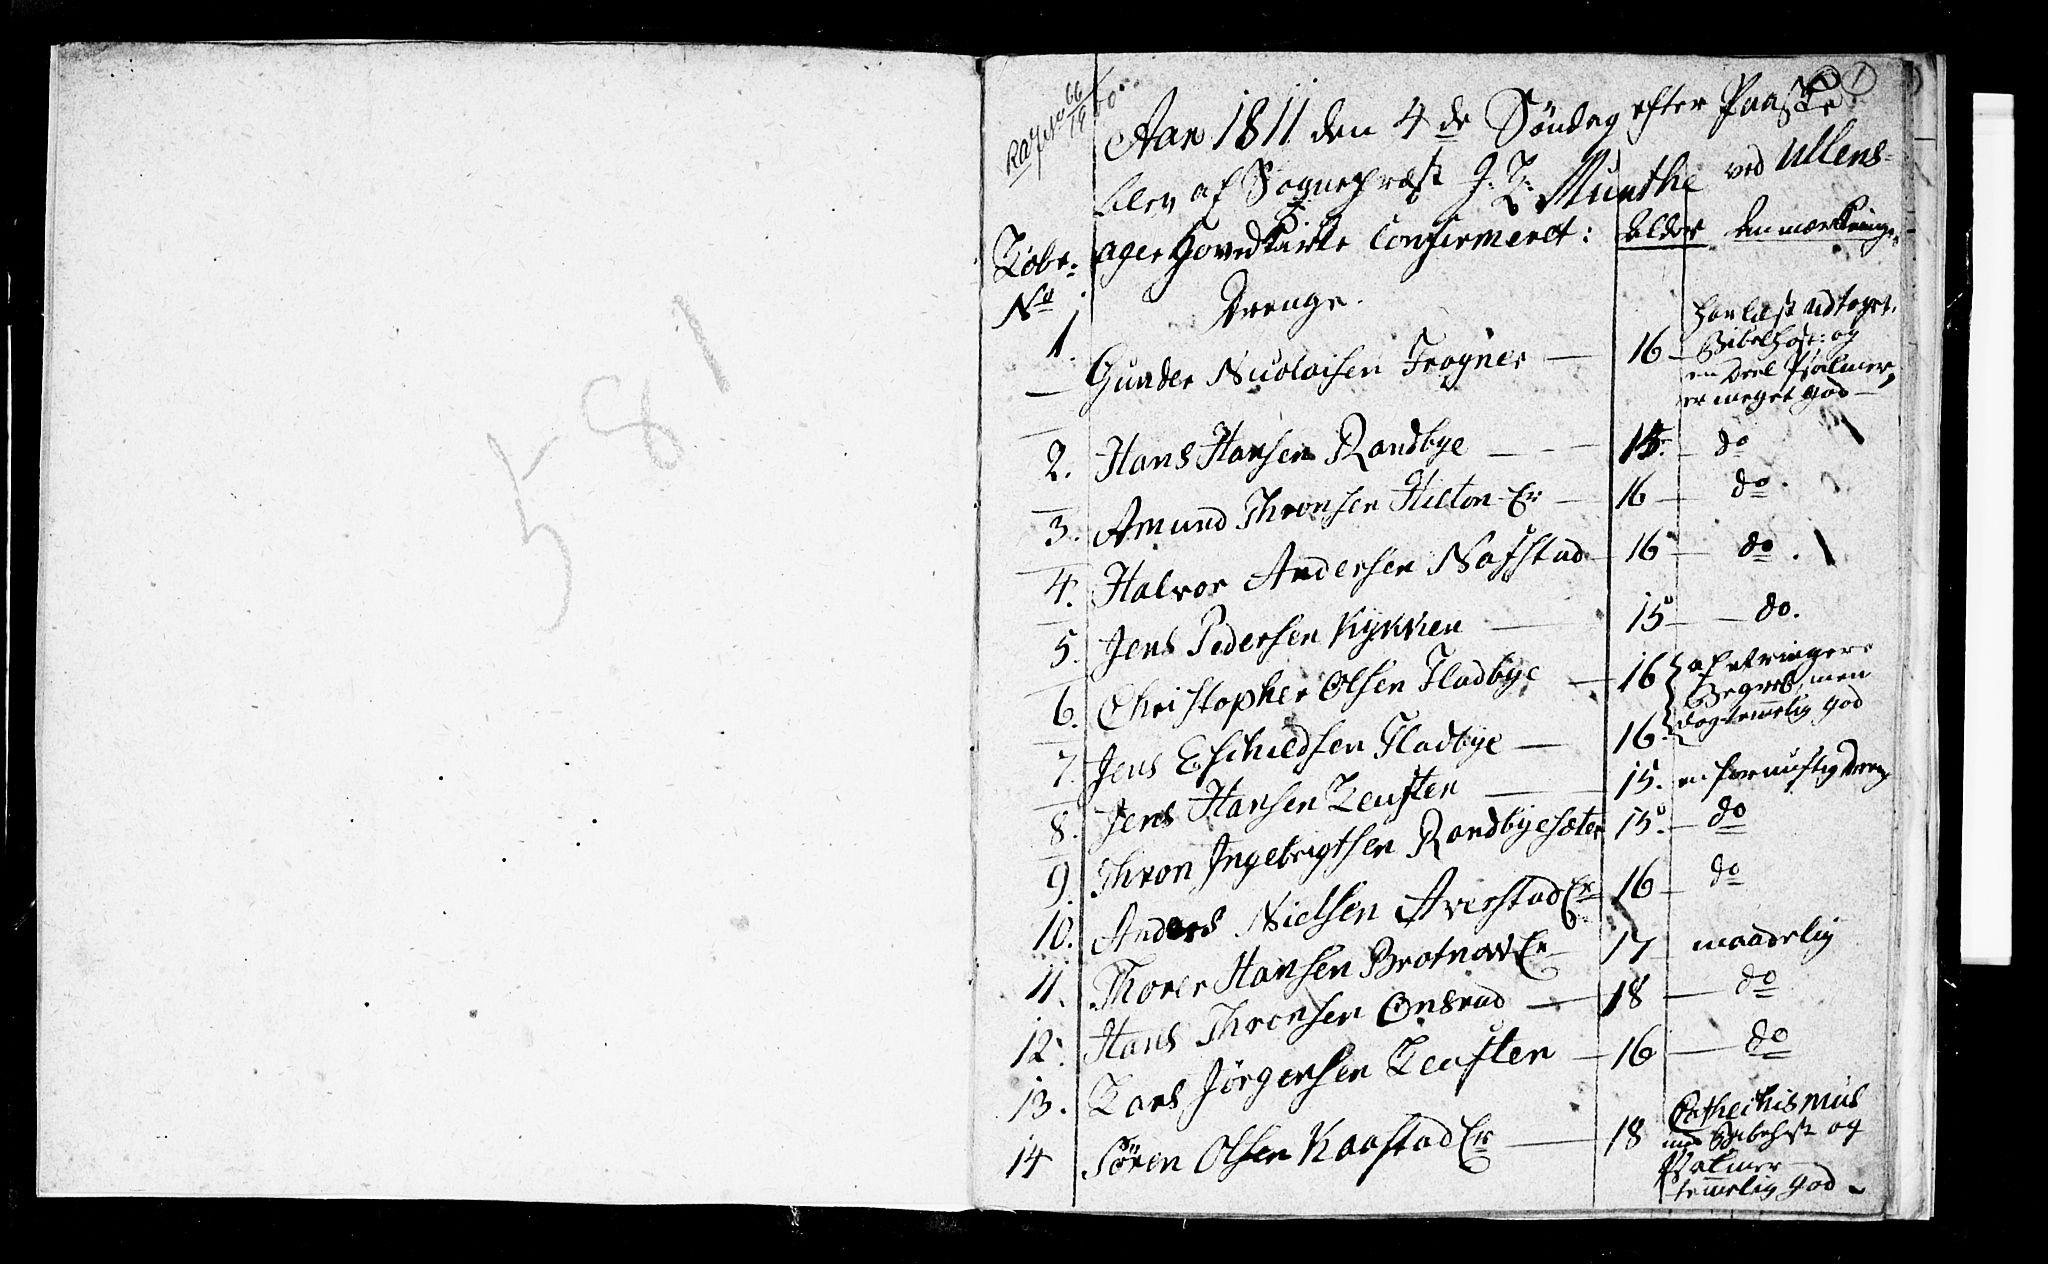 581
1
66
1900
Aar 1811 den 4de Söndag efter Paaske
blev af Sognepræst J: L: Munthe ved Ullens-
ager Hovedkirke Confirmeret:
Löbe- No
Alder
Anmærkninger
Drenge.
1. Gunder Nicolaisen Frogner — 16 — har læst udtoget
Bibelhist: og
en Deel Psalmer,
er meget god —
2. Hans Hansen Randbye — 15. — do
3. Amund Thronsen Hilton Er — 16 — do.
4. Halvor Andersen Nafstad 16 — do.
5. Jens Pedersen Kykken — 15 — do.
6. Christopher Olsen Fladbye — 16 af ringere
Begreb, men
dog temmelig god
7. Jens Eschildsen Fladbye — 16.
8. Jens Hansen Leusten — 15. en fornuftig Dreng
9. Thron Ingebrigtsen Randbyesæter 15. — do
10. Anders Nielsen Averstad Er 16 — do
11. Thorer Hansen Brotnov Er 17 maadelig
12. Hans Thronsen Onsrud — 18 — do
13. Lars Jörgensen Leusten — 16 — do
14 Sören Olsen Kaafstad Er — 18 Cathechismus
Bibelhist og
Psalmer
temmelig god —